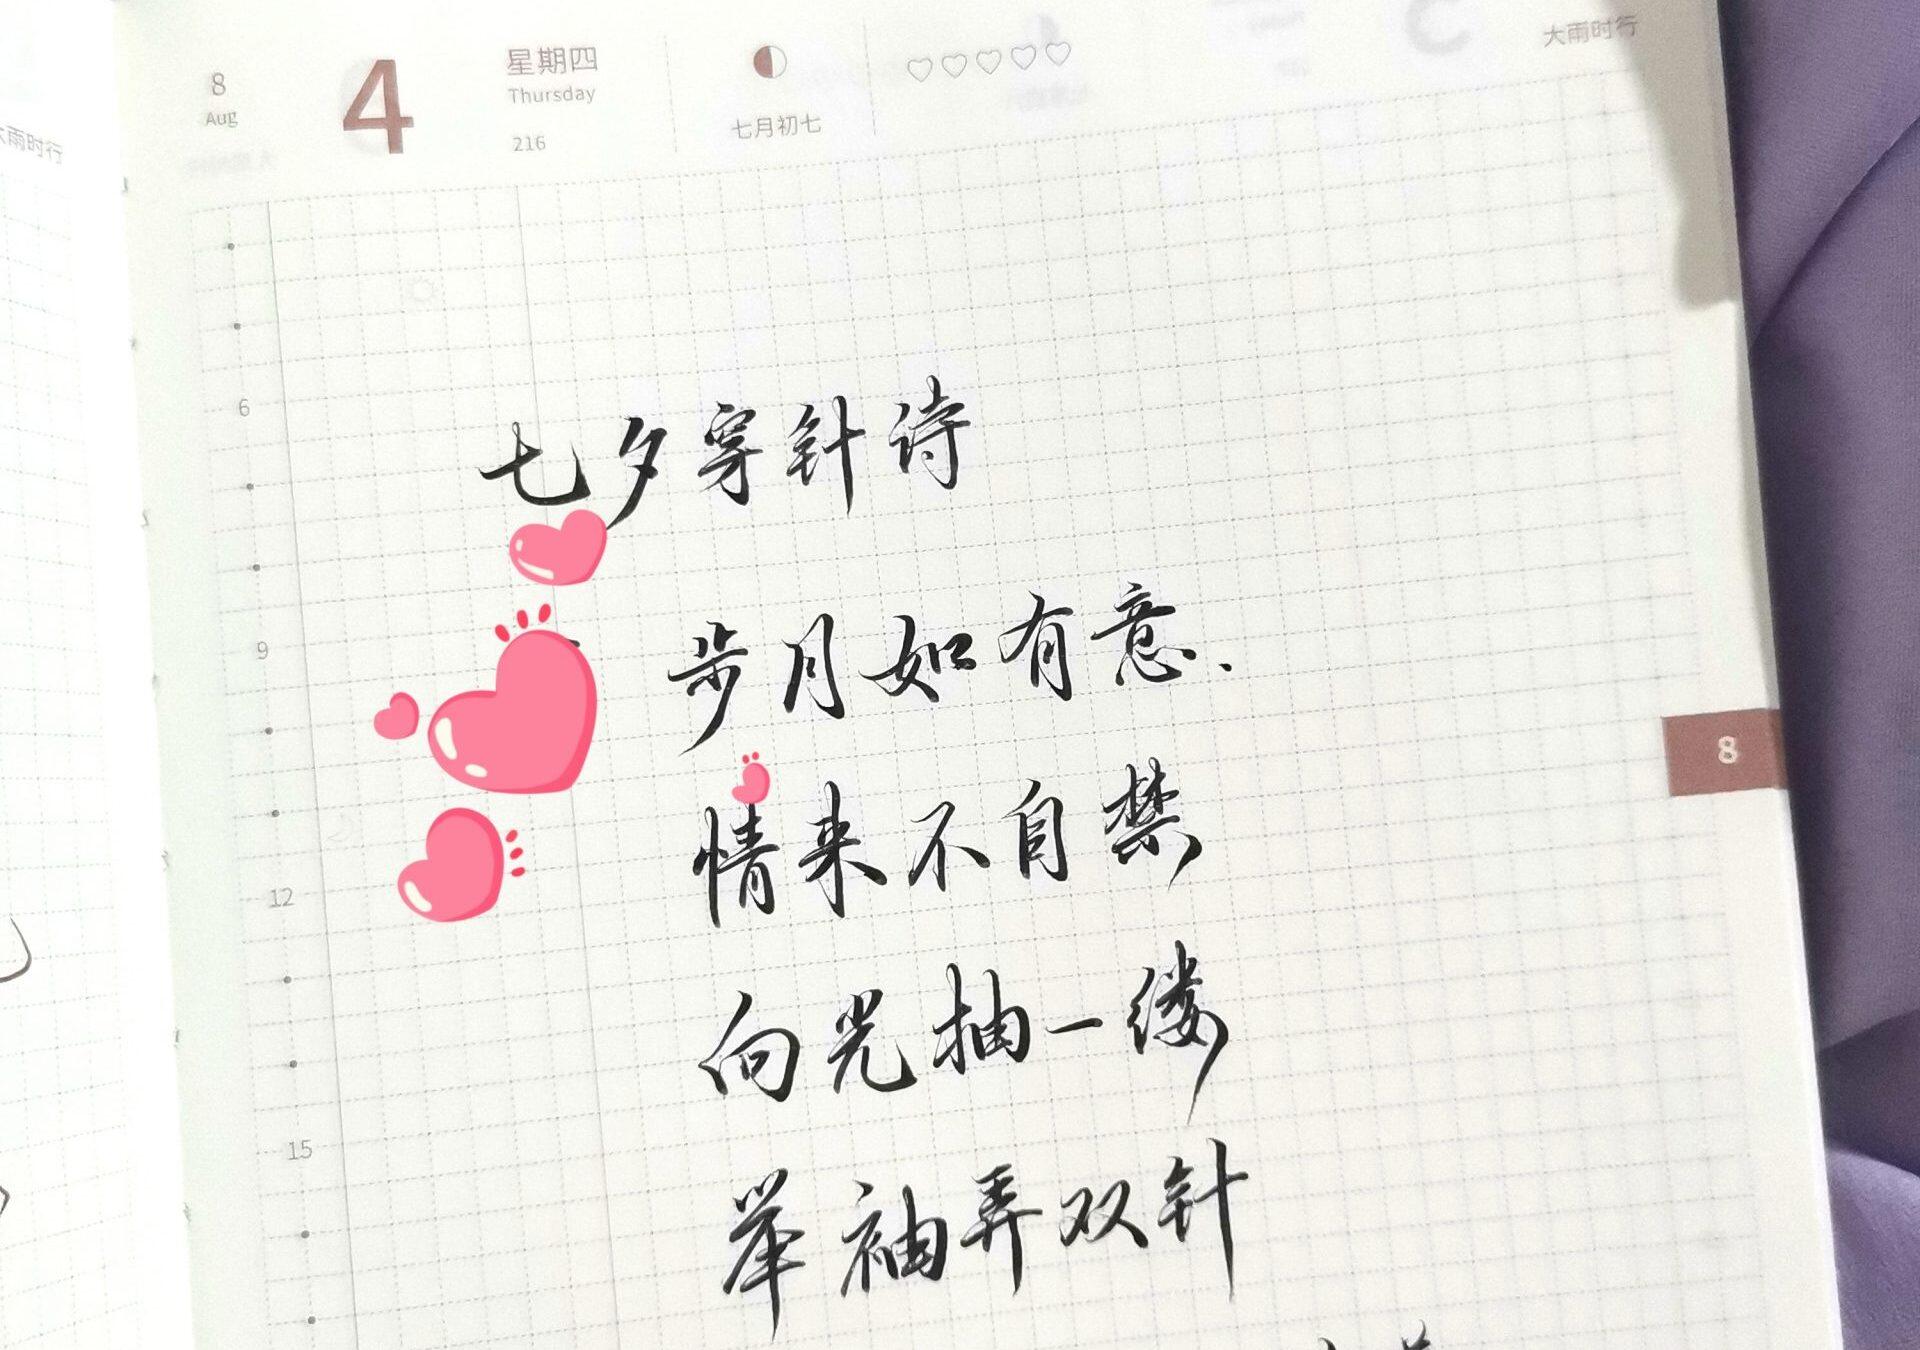 8
Aug
4
星期四
Thursday
216
七月初七
大雨时行
大雨时行
七夕穿针诗
步月如有意.
情来不自禁
向光抽一缕
举袖弄双针
6
9
12
15
8